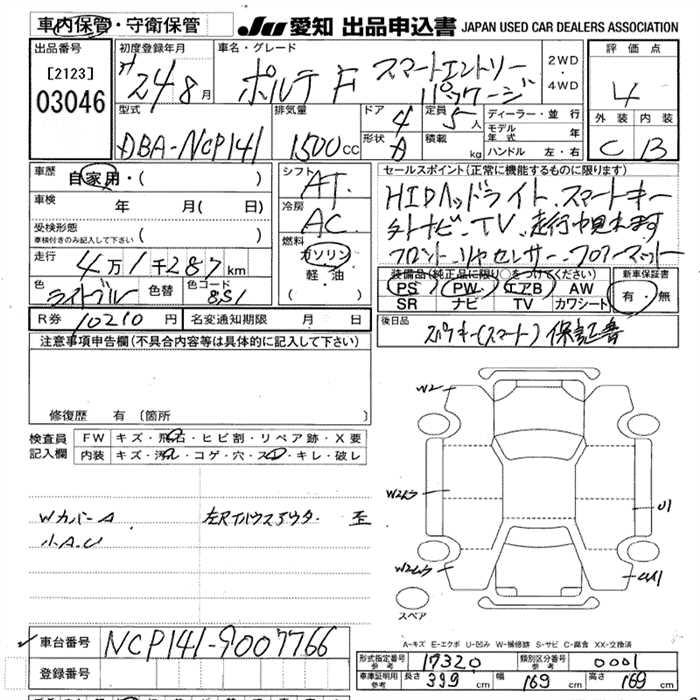 車内保管・守衛保管 JU 愛知 出品申込書 JAPAN USED CAR DEALERS ASSOCIATION
出品番号 [2123] 03046
初度登録年月 24年8月
車名・グレード ポルテ F スマートエントリーパッケージ
2WD・4WD
評価点 4
外装 C 内装 B
型式 DBA-NCP141
排気量 1500cc
ドア 4
形状
定員 5人
積載 kg
ディーラー・並行
モデル年式 年
ハンドル 左・右
車歴 自家用・( )
車検 年 月( 日)
受検形態 ( )
車検付きのみ記入して下さい
走行 4万1千287km
色 ライトブルー 色替 色コード 8S1
シフト AT
冷房 AC
燃料 ガソリン 軽・油 ( )
セールスポイント(正常に機能するものに限ります)
HIDヘッドライト、スマートキー
ナビ・TV、走行中見れます
フロント、リヤセンサー、フロアーマット
装備品(純正品に限り〇をつけてください)
PS PW エアB AW
SR ナビ TV カワシート
新車保証書
有・無
R券 10210円 名変通知期限 月 日
後日品 スペアキー(スマート) 保証書
注意事項申告欄(不具合内容等は具体的に記入して下さい)
修復歴 有 〔箇所
検査員記入欄
FW キズ・飛石・ヒビ割・リペア跡・X要
内装 キズ・汚れ・コゲ・穴・スレ・キレ・破レ
Wカバー A
小A.U
歪
W2
U1
スペア
A-キズ E-エクボ U-凹み W-補修跡 S-サビ C-腐食 XX-交換済
車台番号 NCP141-9007766
登録番号
形式指定番号 参考 17320 類別区分番号 参考 0001
車庫証明用 参考 長さ 399cm 幅 169cm 高さ 169cm